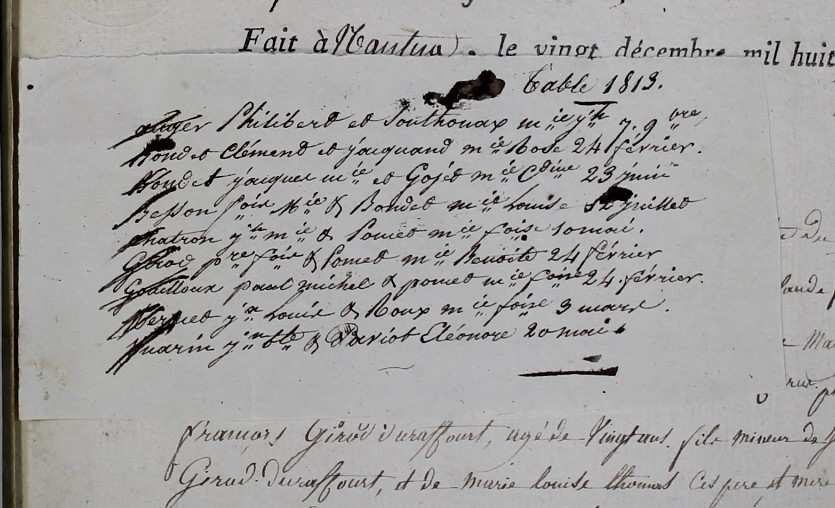 Fait à Nantua, le vingt décembre mil huit
Table 1813.
auger Philibert et Southonax mie jth 7. 9bre,
Bondet Clémend et jacquand mie Rose 24 février.
Bondet jacques mie et Gojet mie Cdine 23 juin
Besson fois Mie & Bondet mie Louise juillet
Chatron jh mie & Pomet mie foise 10 mai.
Girod pre fois & Pomet mie Benoite 24 février
Goailloux paul michel & pomet mie foise 24 février.
Mermet jn Louis & Roux mie foise 3 mars.
Guarin jn bte & Variot Eléonore 20 mai.
françois Girod duraffourt, agé de Vingt ans, fils mineur de
Girod-duraffourt, et de marie louise thomas Ces pere et mere